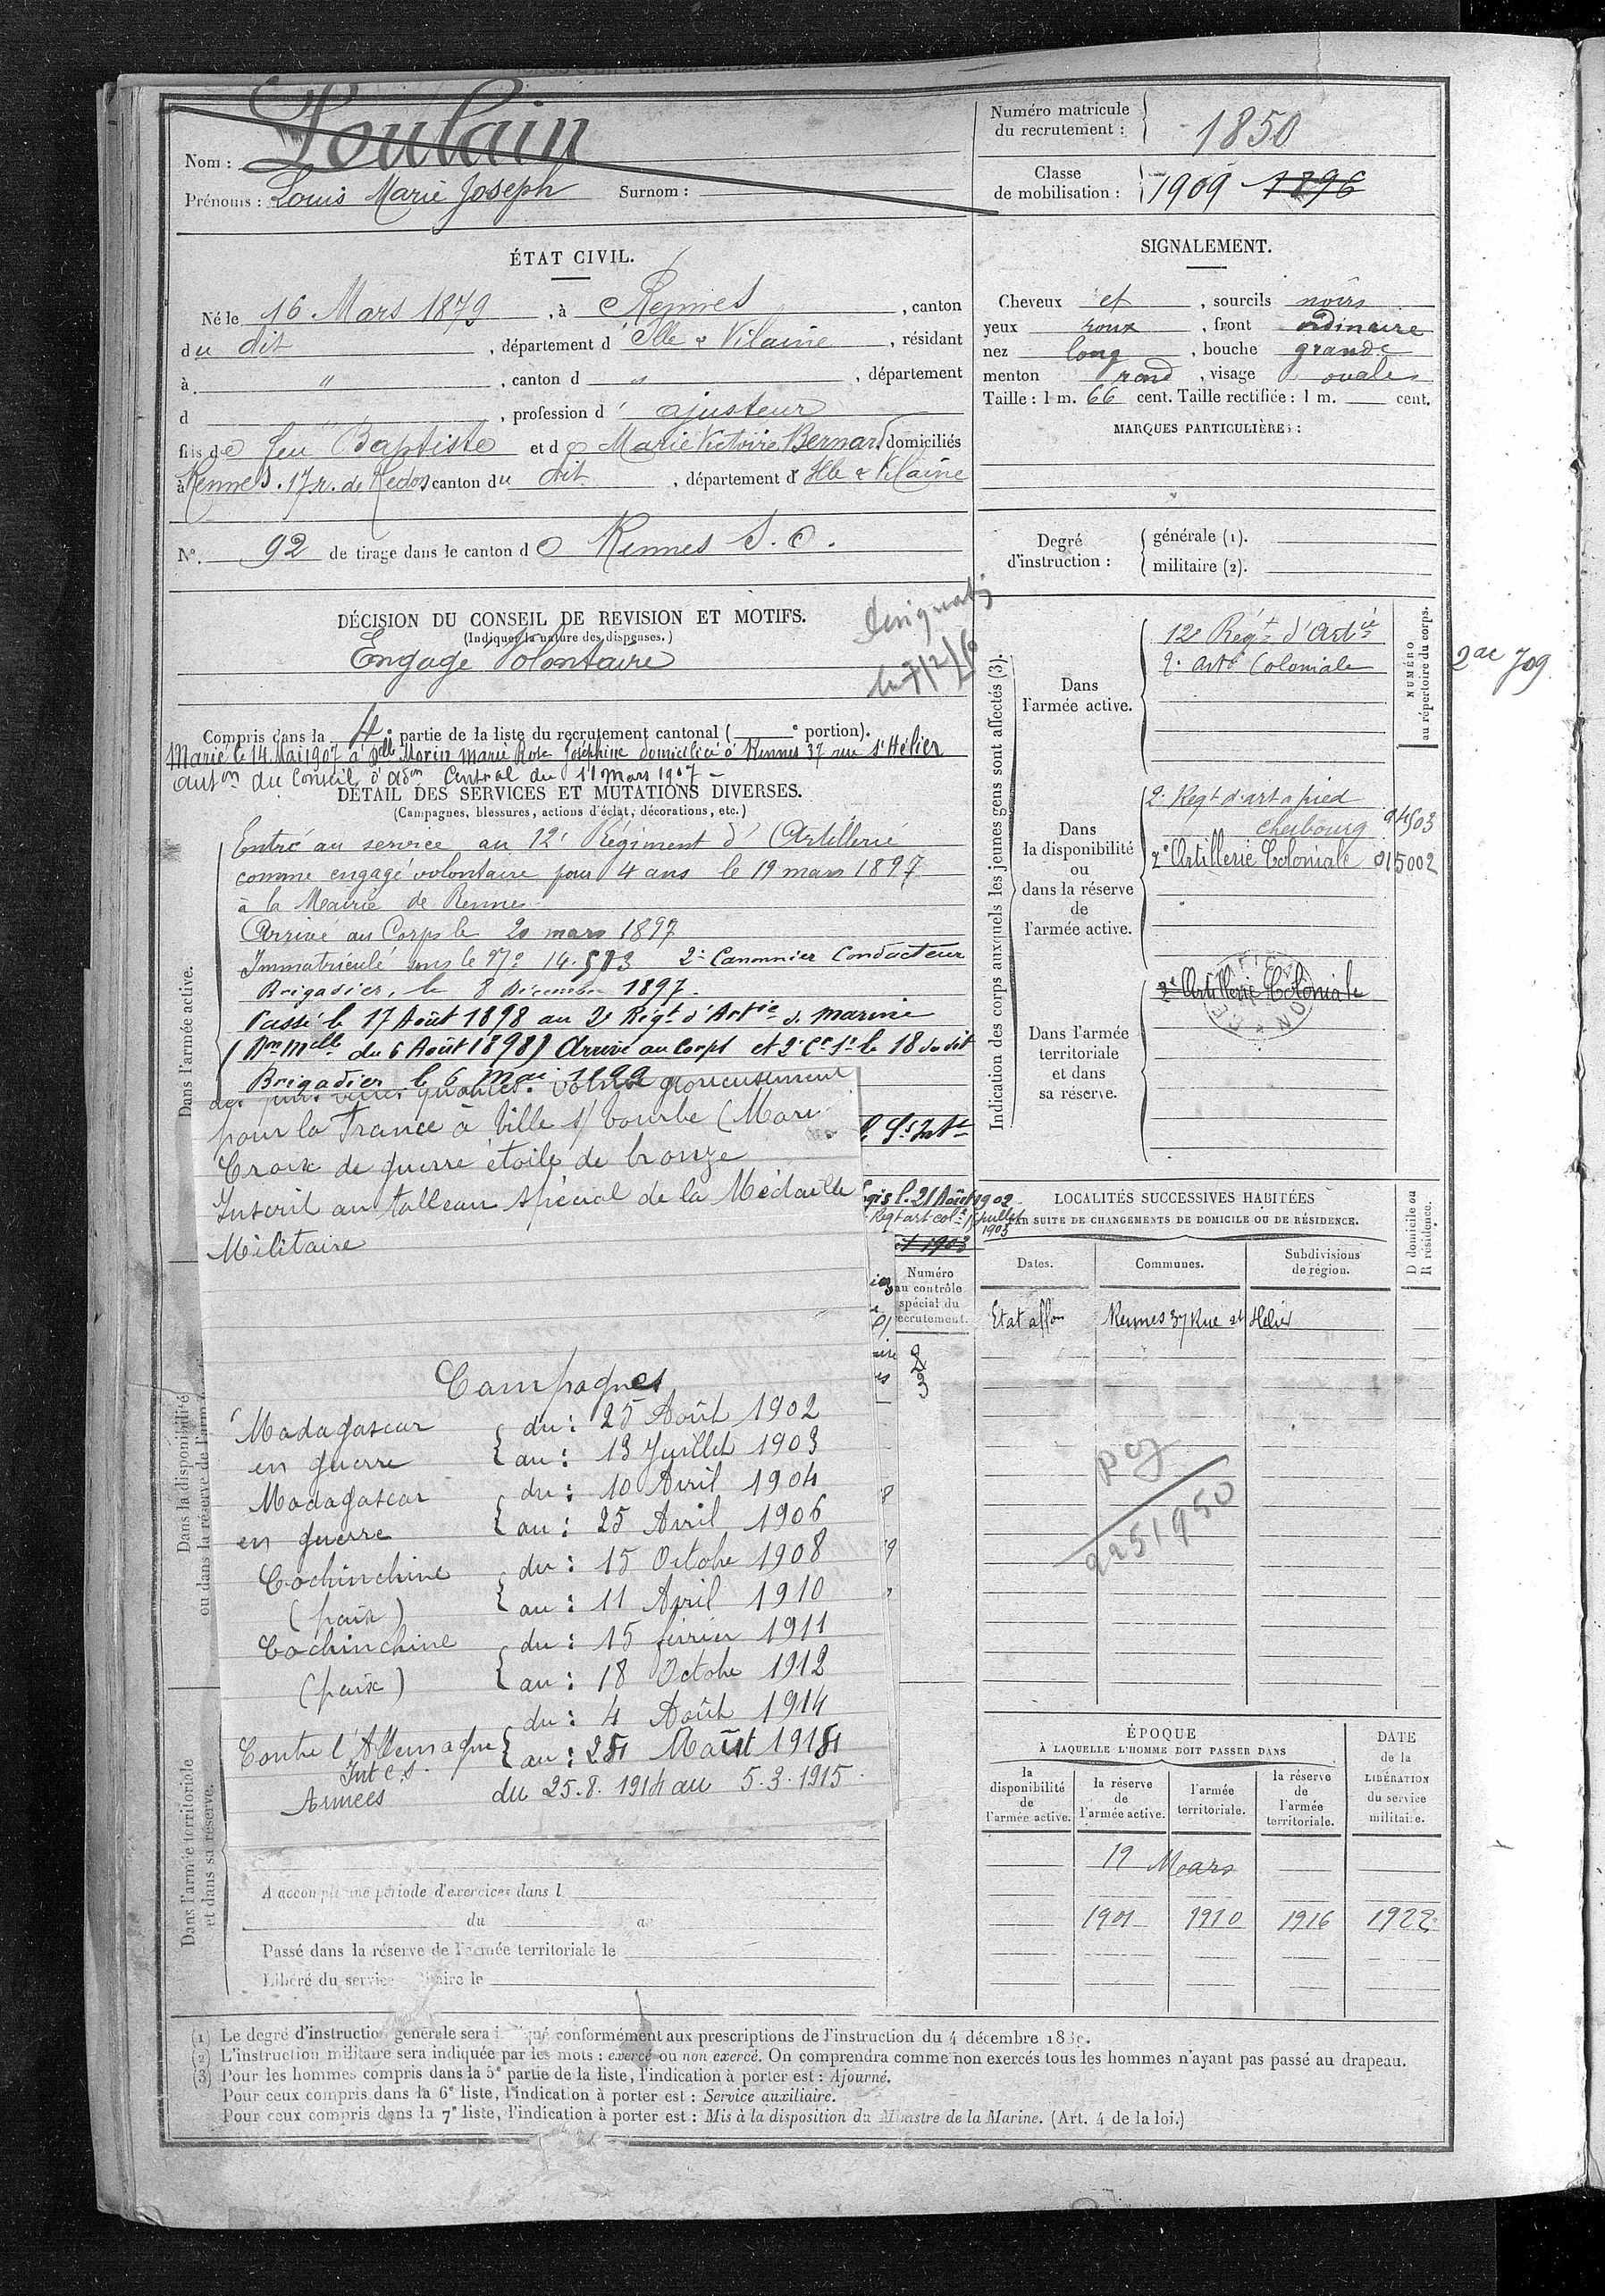 Nom : Toulain
Prénoms : Louis Marie Joseph Surnom :
Numéro matricule
du recrutement : 1850
Classe
de mobilisation : 1909 1896
ÉTAT CIVIL.
Né le 16 Mars 1879, à Rennes, canton
du dit, département d'Ille & Vilaine, résidant
à " , canton d " , département
d , profession d'ajusteur
fils de feu Baptiste et de Marie Victoire Bernard domiciliés
à Rennes. 17 r. de Redon canton du dit, département d'Ille & Vilaine
N° 92 de tirage dans le canton de Rennes S. O.
SIGNALEMENT.
Cheveux et , sourcils noirs
yeux roux , front ordinaire
nez long , bouche grande
menton rond , visage ovale
Taille : 1 m. 66 cent. Taille rectifiée : 1 m. cent.
MARQUES PARTICULIÈRES :
Degré
d'instruction :
générale (1).
militaire (2).
DÉCISION DU CONSEIL DE REVISION ET MOTIFS.
(Indiquer la nature des dispenses.)
Engagé Volontaire
Compris dans la 4e partie de la liste du recrutement cantonal ( e portion).
Marié le 14 Mai 1907 à Dlle Morin Marie Rose Joséphine domiciliée à Rennes 37 rue St Hélier
auton du Conseil d'adon Central du 11 mars 1907 -
DÉTAIL DES SERVICES ET MUTATIONS DIVERSES.
(Campagnes, blessures, actions d'éclat, décorations, etc.)
Dans l'armée active.
Entré au service au 12e Régiment d'Artillerie
comme engagé volontaire pour 4 ans le 19 mars 1897
à la Mairie de Rennes
Arrivé au Corps le 20 mars 1897
Immatriculé sous le No 14.513 2e Canonnier Conducteur
Brigadier, le 8 Décembre 1897.
Passé le 17 Août 1898 au 2e Régt d'Artie de marine
(Don Melle du 6 Août 1898) Arrivé au Corps et 2e Cr St le 18 du dit
Brigadier le 6 mai 1899
pour la France à Ville s/ Tourbe (Marn
Croix de guerre étoile de bronze
Inscrit au tableau spécial de la Médaille
Militaire
21 Août 1902
Regt art col
juillet
1903
Numéro
au contrôle
spécial du
recrutement.
Campagnes
Madagascar du : 25 Août 1902
en guerre au : 13 Juillet 1903
Madagascar du : 10 Avril 1904
en guerre au : 25 Avril 1906
Cochinchine du : 15 Octobre 1908
(paix) au : 11 Avril 1910
Cochinchine du : 15 février 1911
(paix) au : 18 Octobre 1912
du : 4 Août 1914
Contre l'Allemagne au : 24 Août 1914
Int C.S.
Armées du 25.8.1914 au 5.3.1915
Dans la disponibilité
ou dans la réserve de l'arm
Dans l'armée territoriale
et dans sa réserve.
A accompli une période d'exercices dans l
du au
Passé dans la réserve de l'armée territoriale le
Libéré du service militaire le
Indication des corps auxquels les jeunes gens sont affectés (3).
NUMÉRO
au répertoire du corps.
Dans
l'armée active.
12e Régt d'Artie
2e arte Coloniale
2ac 709
Dans
la disponibilité
ou
dans la réserve
de
l'armée active.
2e Regt d'art à pied
cherbourg
2e Artillerie Coloniale 015002
Dans l'armée
territoriale
et dans
sa réserve.
2e Artillerie Coloniale
LOCALITÉS SUCCESSIVES HABITÉES
PAR SUITE DE CHANGEMENTS DE DOMICILE OU DE RÉSIDENCE.
D domicile ou
R résidence.
Dates.
Communes.
Subdivisions
de région.
Etat affon Rennes 37 Rue St Hélier
2251950
ÉPOQUE
À LAQUELLE L'HOMME DOIT PASSER DANS
la
disponibilité
de
l'armée active.
la réserve
de
l'armée active.
l'armée
territoriale.
la réserve
de
l'armée
territoriale.
DATE
de la
LIBÉRATION
du service
militaire.
19 Mars
1901 1910 1916 1922
(1) Le degré d'instruction générale sera indiqué conformément aux prescriptions de l'instruction du 4 décembre 1889.
(2) L'instruction militaire sera indiquée par les mots : exercé ou non exercé. On comprendra comme non exercés tous les hommes n'ayant pas passé au drapeau.
(3) Pour les hommes compris dans la 5e partie de la liste, l'indication à porter est : Ajourné.
Pour ceux compris dans la 6e liste, l'indication à porter est : Service auxiliaire.
Pour ceux compris dans la 7e liste, l'indication à porter est : Mis à la disposition du Ministre de la Marine. (Art. 4 de la loi.)